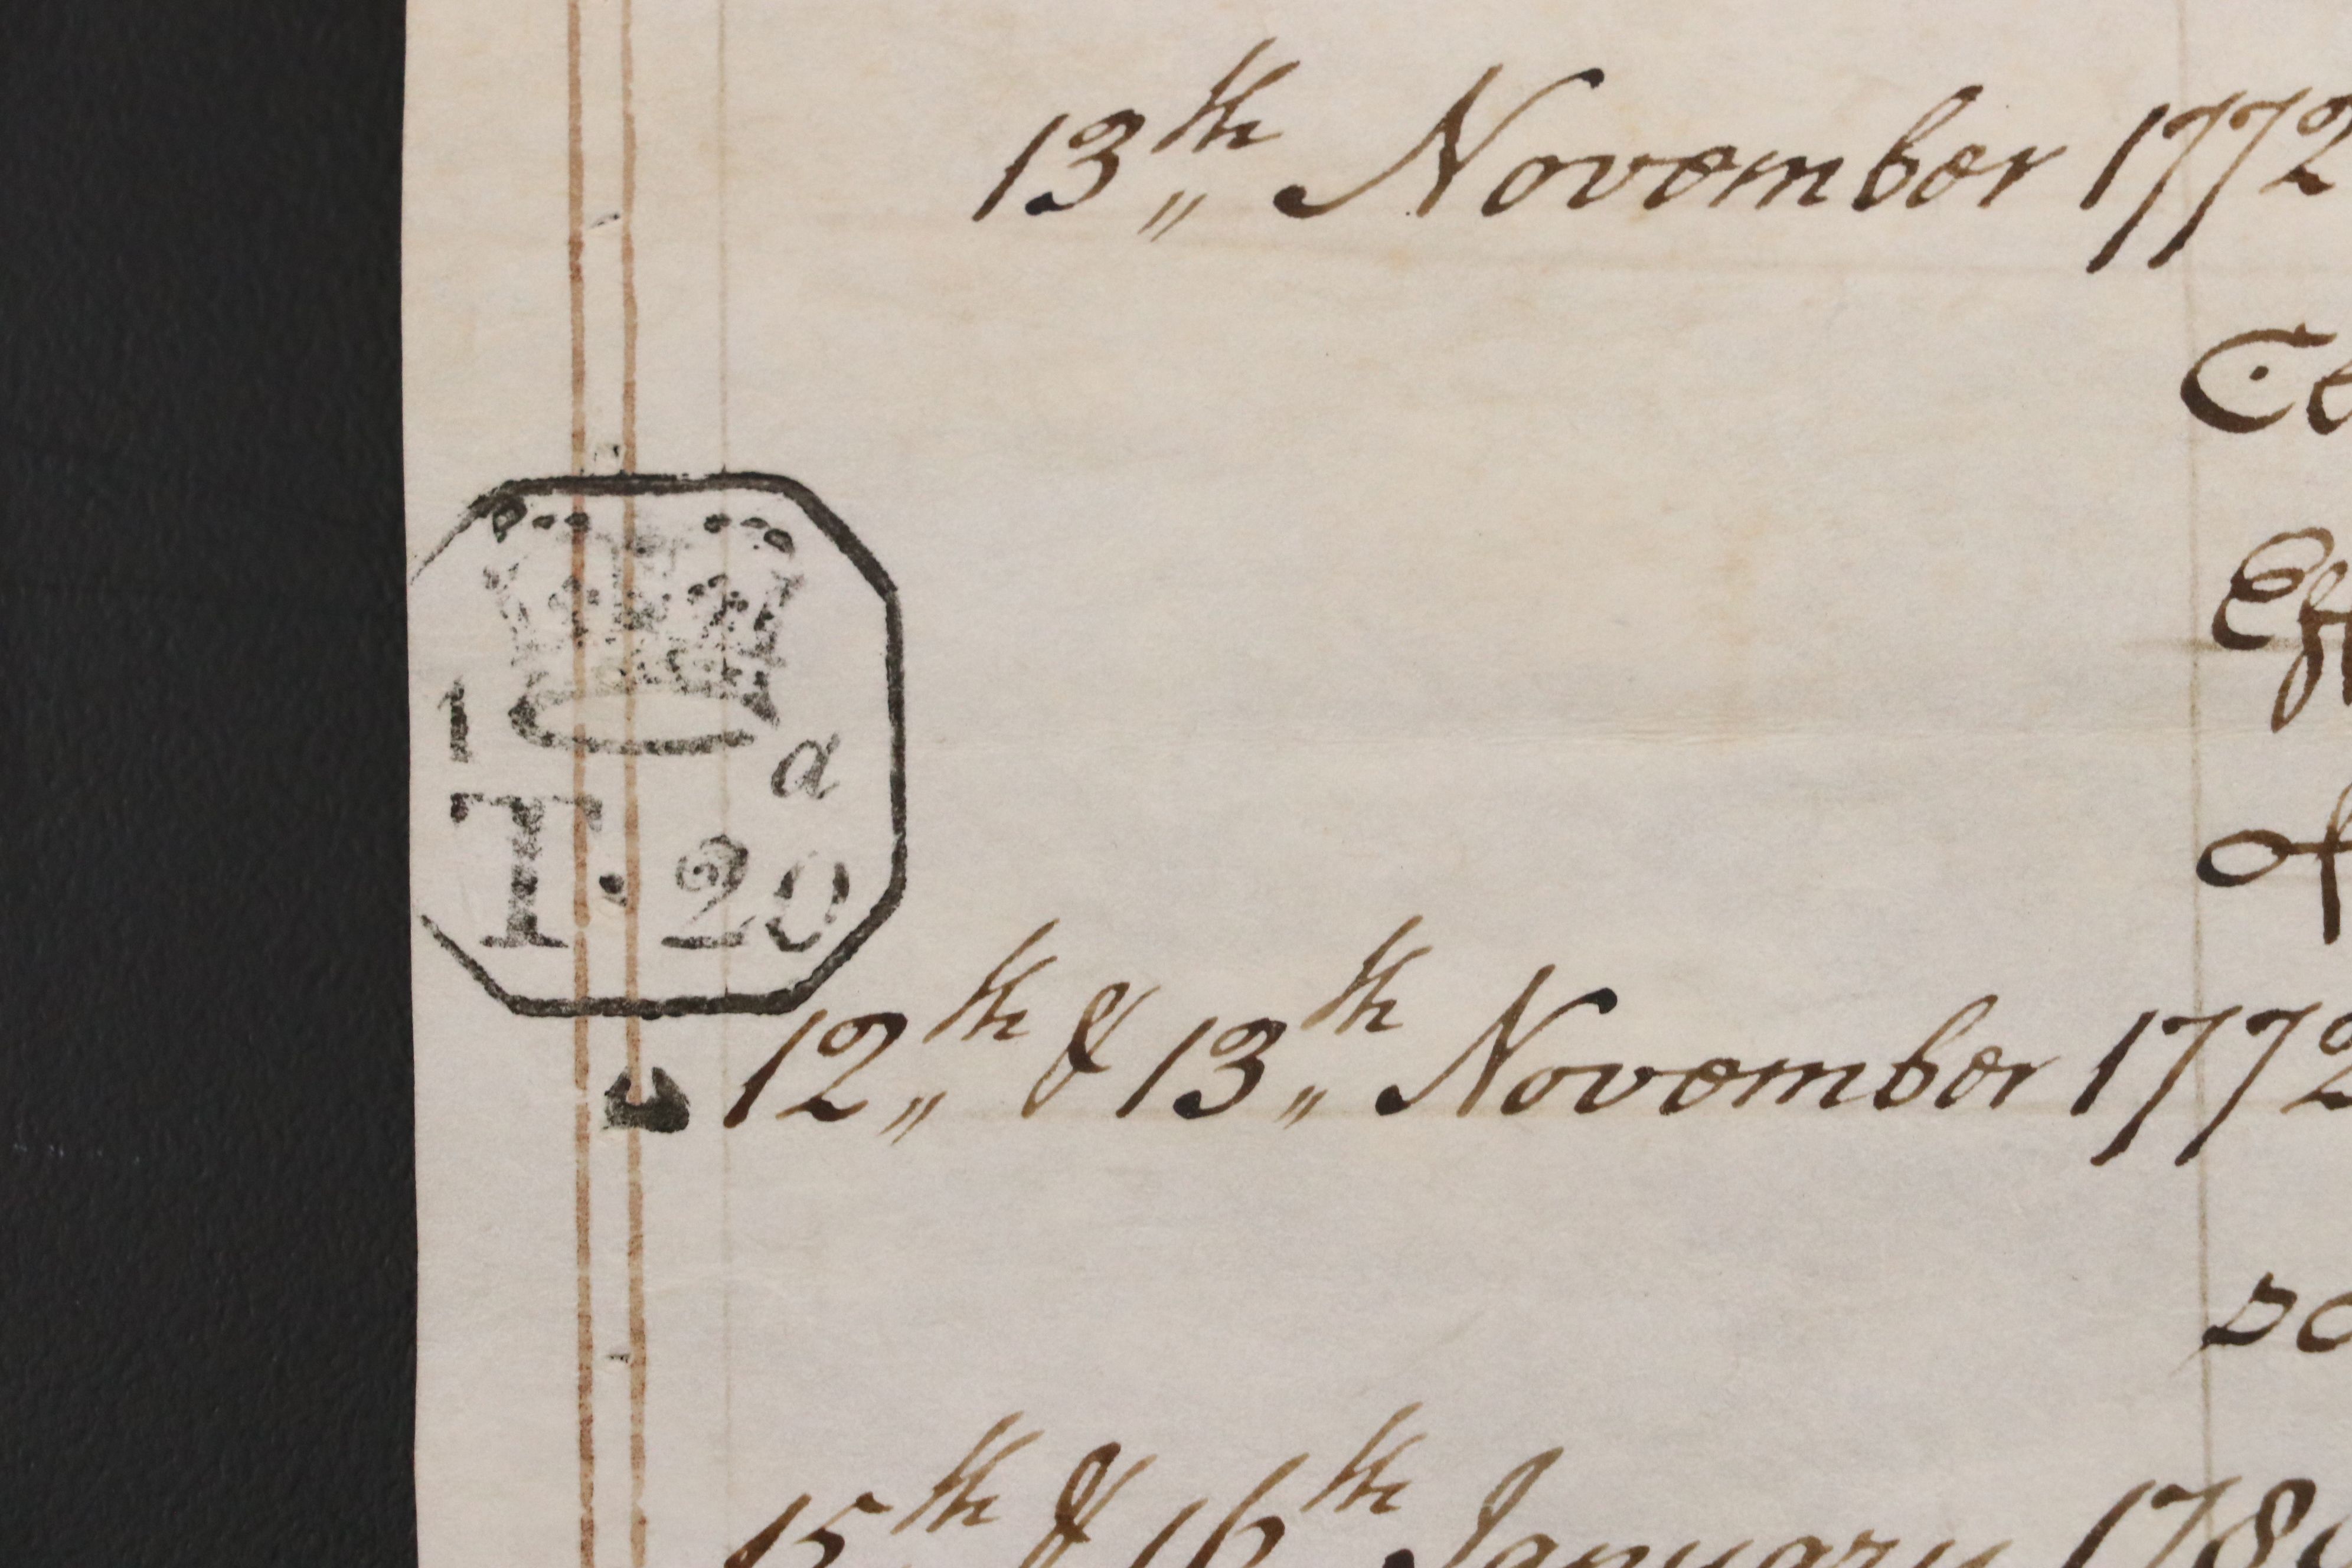 13th„ November 1772
1
d
T. 20
12th„ & 13th„ November 1772
15th & 16th January